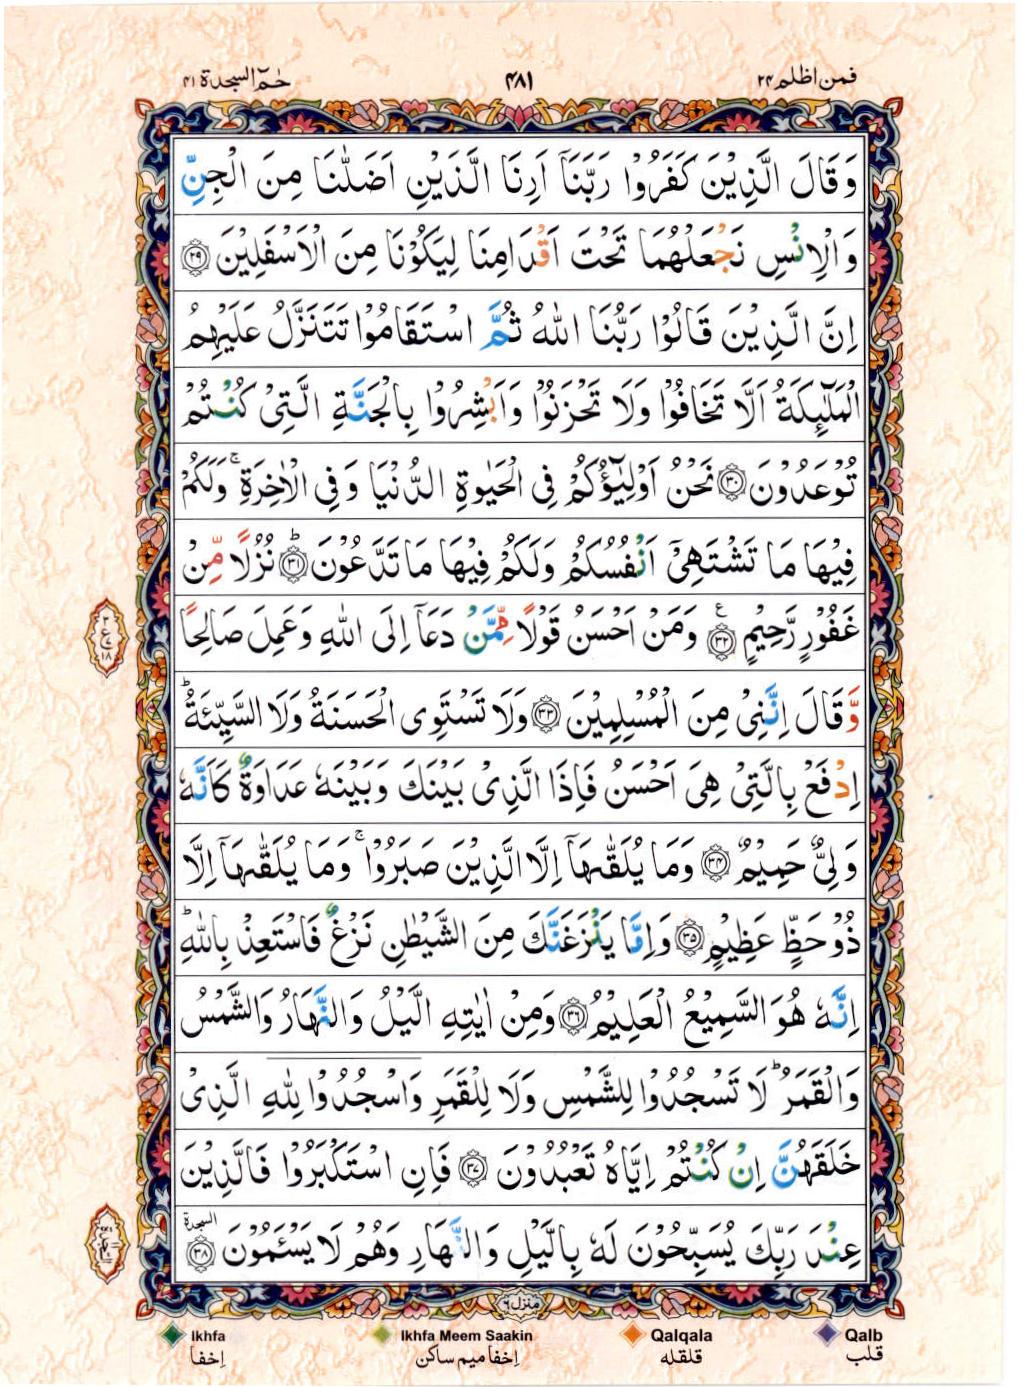 فمن اظلم ۲۴
۴۸۱
حٰمٓ السجدة ۴۱
وَقَالَ الَّذِيْنَ كَفَرُوْا رَبَّنَآ اَرِنَا الَّذَيْنِ اَضَلّٰنَا مِنَ الْجِنِّ
وَالْاِنْسِ نَجْعَلْهُمَا تَحْتَ اَقْدَامِنَا لِيَكُوْنَا مِنَ الْاَسْفَلِيْنَ ۲۹
اِنَّ الَّذِيْنَ قَالُوْا رَبُّنَا اللّٰهُ ثُمَّ اسْتَقَامُوْا تَتَنَزَّلُ عَلَيْهِمُ
الْمَلٰٓئِكَةُ اَلَّا تَخَافُوْا وَلَا تَحْزَنُوْا وَاَبْشِرُوْا بِالْجَنَّةِ الَّتِىْ كُنْتُمْ
تُوْعَدُوْنَ ۳۰ نَحْنُ اَوْلِيٰٓؤُكُمْ فِى الْحَيٰوةِ الدُّنْيَا وَفِى الْاٰخِرَةِ ۚ وَلَكُمْ
فِيْهَا مَا تَشْتَهِىْٓ اَنْفُسُكُمْ وَلَكُمْ فِيْهَا مَا تَدَّعُوْنَ ؕ ۳۱ نُزُلًا مِّنْ
غَفُوْرٍ رَّحِيْمٍ ۳۲ ع وَمَنْ اَحْسَنُ قَوْلًا مِّمَّنْ دَعَآ اِلَى اللّٰهِ وَعَمِلَ صَالِحًا
وَّقَالَ اِنَّنِىْ مِنَ الْمُسْلِمِيْنَ ۳۳ وَلَا تَسْتَوِى الْحَسَنَةُ وَلَا السَّيِّئَةُ ؕ
اِدْفَعْ بِالَّتِىْ هِىَ اَحْسَنُ فَاِذَا الَّذِىْ بَيْنَكَ وَبَيْنَهٗ عَدَاوَةٌ كَاَنَّهٗ
وَلِىٌّ حَمِيْمٌ ۳۴ وَمَا يُلَقّٰىهَآ اِلَّا الَّذِيْنَ صَبَرُوْا ۚ وَمَا يُلَقّٰىهَآ اِلَّا
ذُوْ حَظٍّ عَظِيْمٍ ۳۵ وَاِمَّا يَنْزَغَنَّكَ مِنَ الشَّيْطٰنِ نَزْغٌ فَاسْتَعِذْ بِاللّٰهِ ؕ
اِنَّهٗ هُوَ السَّمِيْعُ الْعَلِيْمُ ۳۶ وَمِنْ اٰيٰتِهِ الَّيْلُ وَالنَّهَارُ وَالشَّمْسُ
وَالْقَمَرُ ؕ لَا تَسْجُدُوْا لِلشَّمْسِ وَلَا لِلْقَمَرِ وَاسْجُدُوْا لِلّٰهِ الَّذِىْ
خَلَقَهُنَّ اِنْ كُنْتُمْ اِيَّاهُ تَعْبُدُوْنَ ۳۷ فَاِنِ اسْتَكْبَرُوْا فَالَّذِيْنَ
عِنْدَ رَبِّكَ يُسَبِّحُوْنَ لَهٗ بِالَّيْلِ وَالنَّهَارِ وَهُمْ لَا يَسْئَمُوْنَ ۳۸ السجدة
ع ۱۸
منزل ۶
Ikhfa
Ikhfa Meem Saakin
Qalqala
Qalb
اِخفا
اِخفا میم ساکن
قلقله
قلب